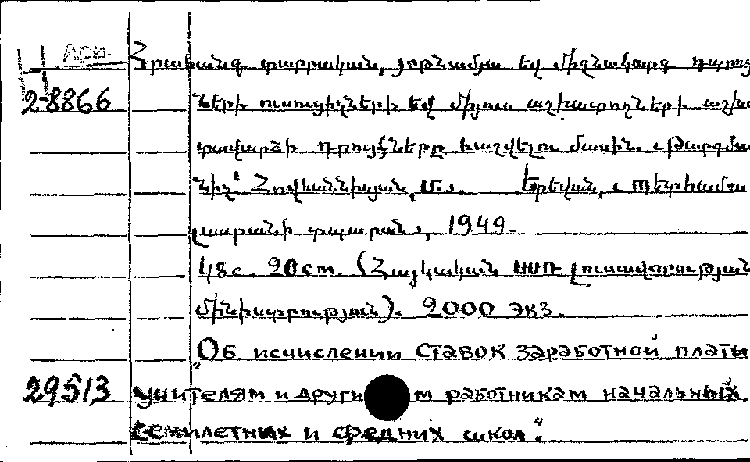 Арм.
2-8866
Հրահանգ տարրական, յոթնամյա եվ միջնակարգ դպրոց
ների ուսուցիչների եվ մյուս աշխատողների աշխա
տավարձի դրույքները հաշվելու մասին. Թարգմա
նիչ՝ Հովհաննիսյան, Երեվան,
1949.
48с. 20см. (Հայկական ՍՍՌ լուսավորության
մինիստրություն). 2000 экз.
"Об исчислении ставок заработной платы
29513 учителям и други м работникам начальных
семилетних и средних школ".